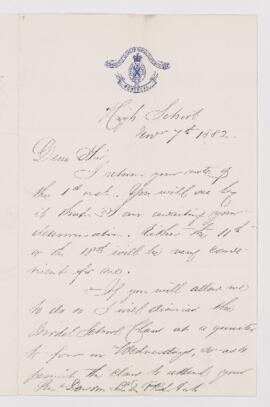 MONTREAL
High School
Novr 7th 1882.
Dear Sir,
I return your note of
the 1st inst. You will see by
it that I am awaiting your
determination. Either the 11th
or the 18th will be very conve-
nient for me.
If you will allow me
to do so I will dismiss the
Model School Class at a quarter
to four on Wednesdays, so as to
permit the class to attend your